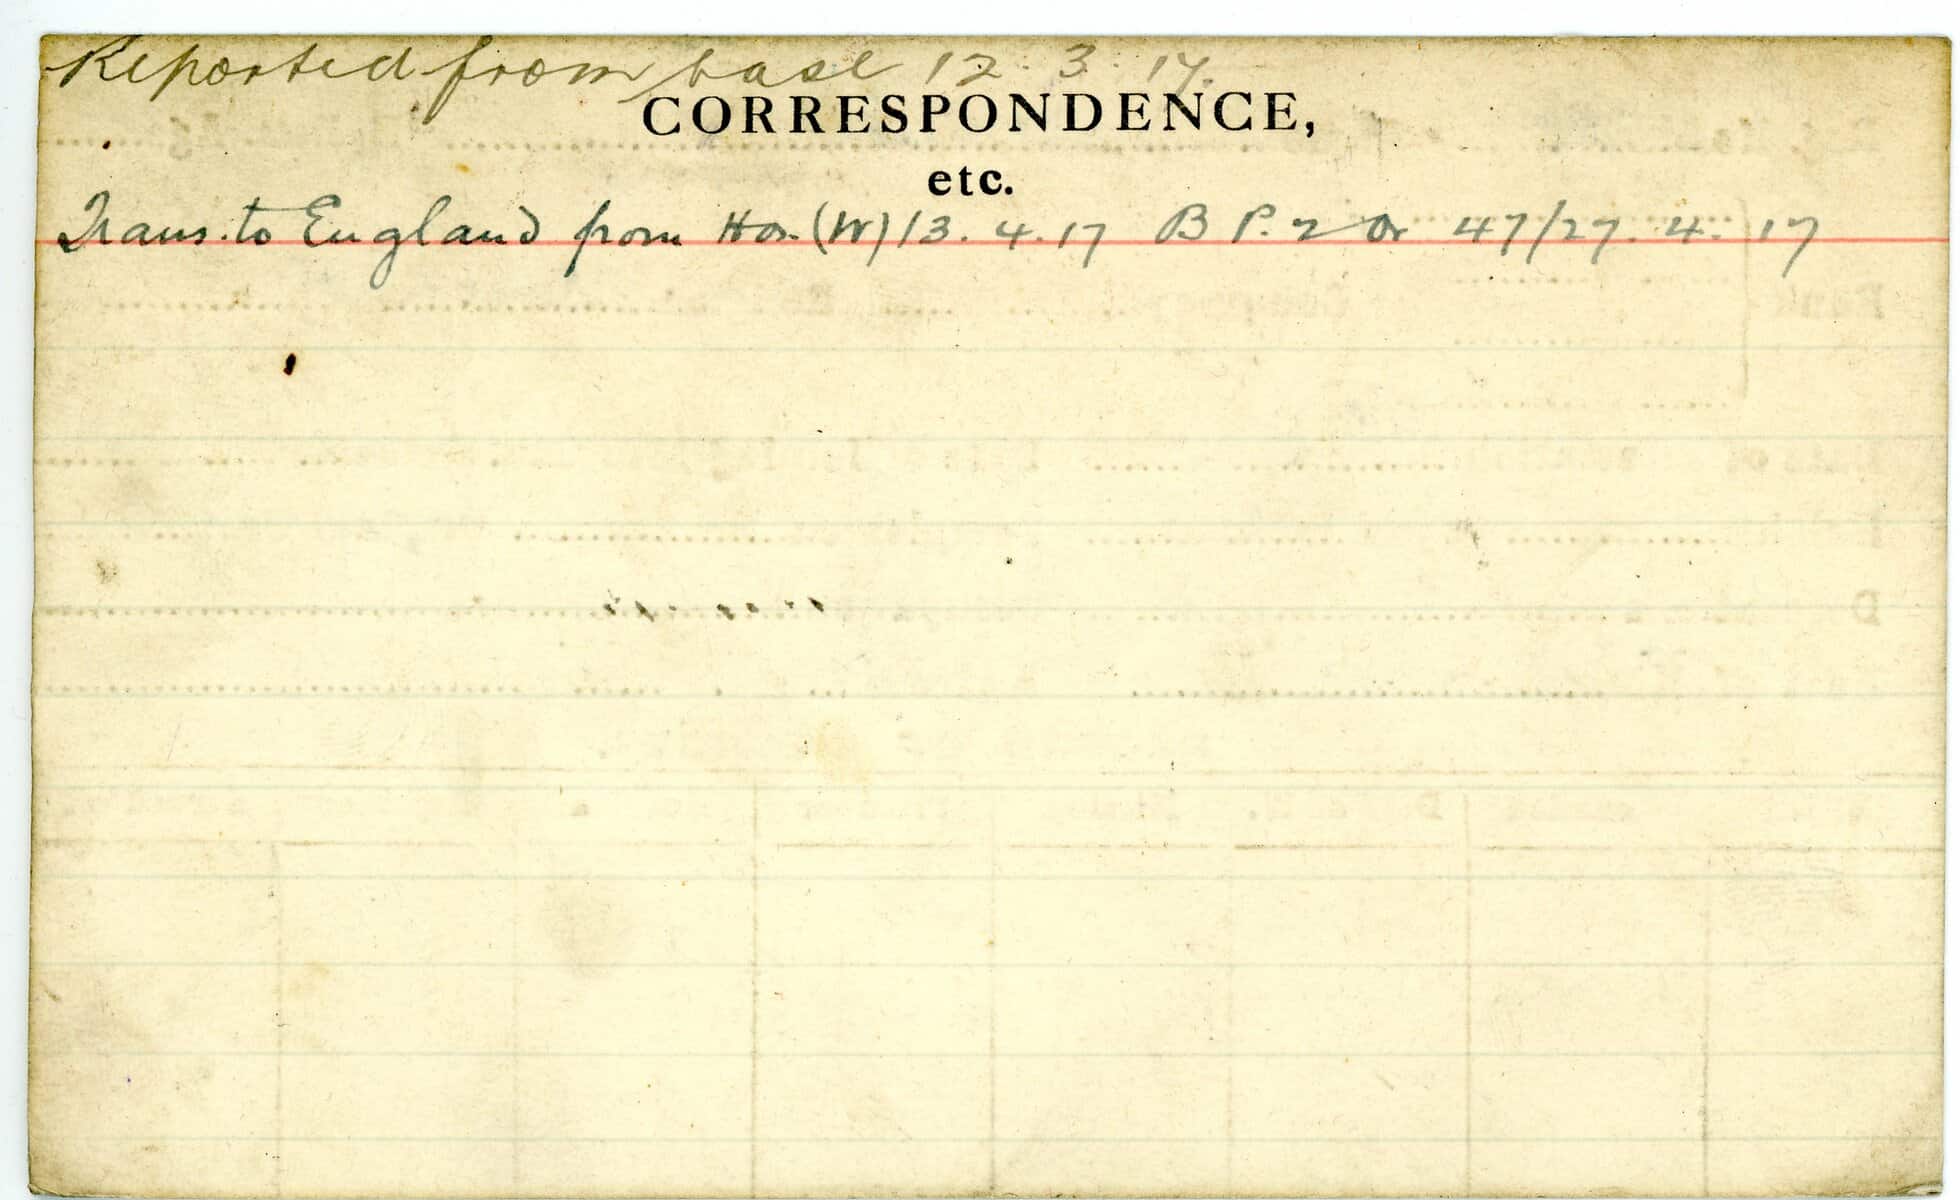 Reported from base 12. 3. 17.
CORRESPONDENCE,
etc.
Trans. to England from Hos. (W) 13. 4. 17 B P. 2 Or 47/27. 4. 17